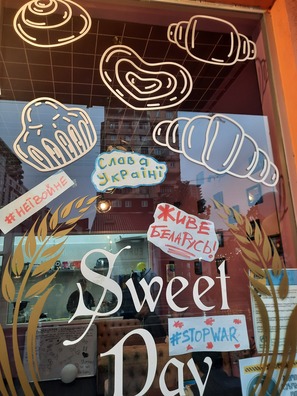 Слава
Україні
#НЕТВОЙНЕ
ЖИВЕ
БЕЛАРУСЬ!
Sweet
#STOPWAR
Day